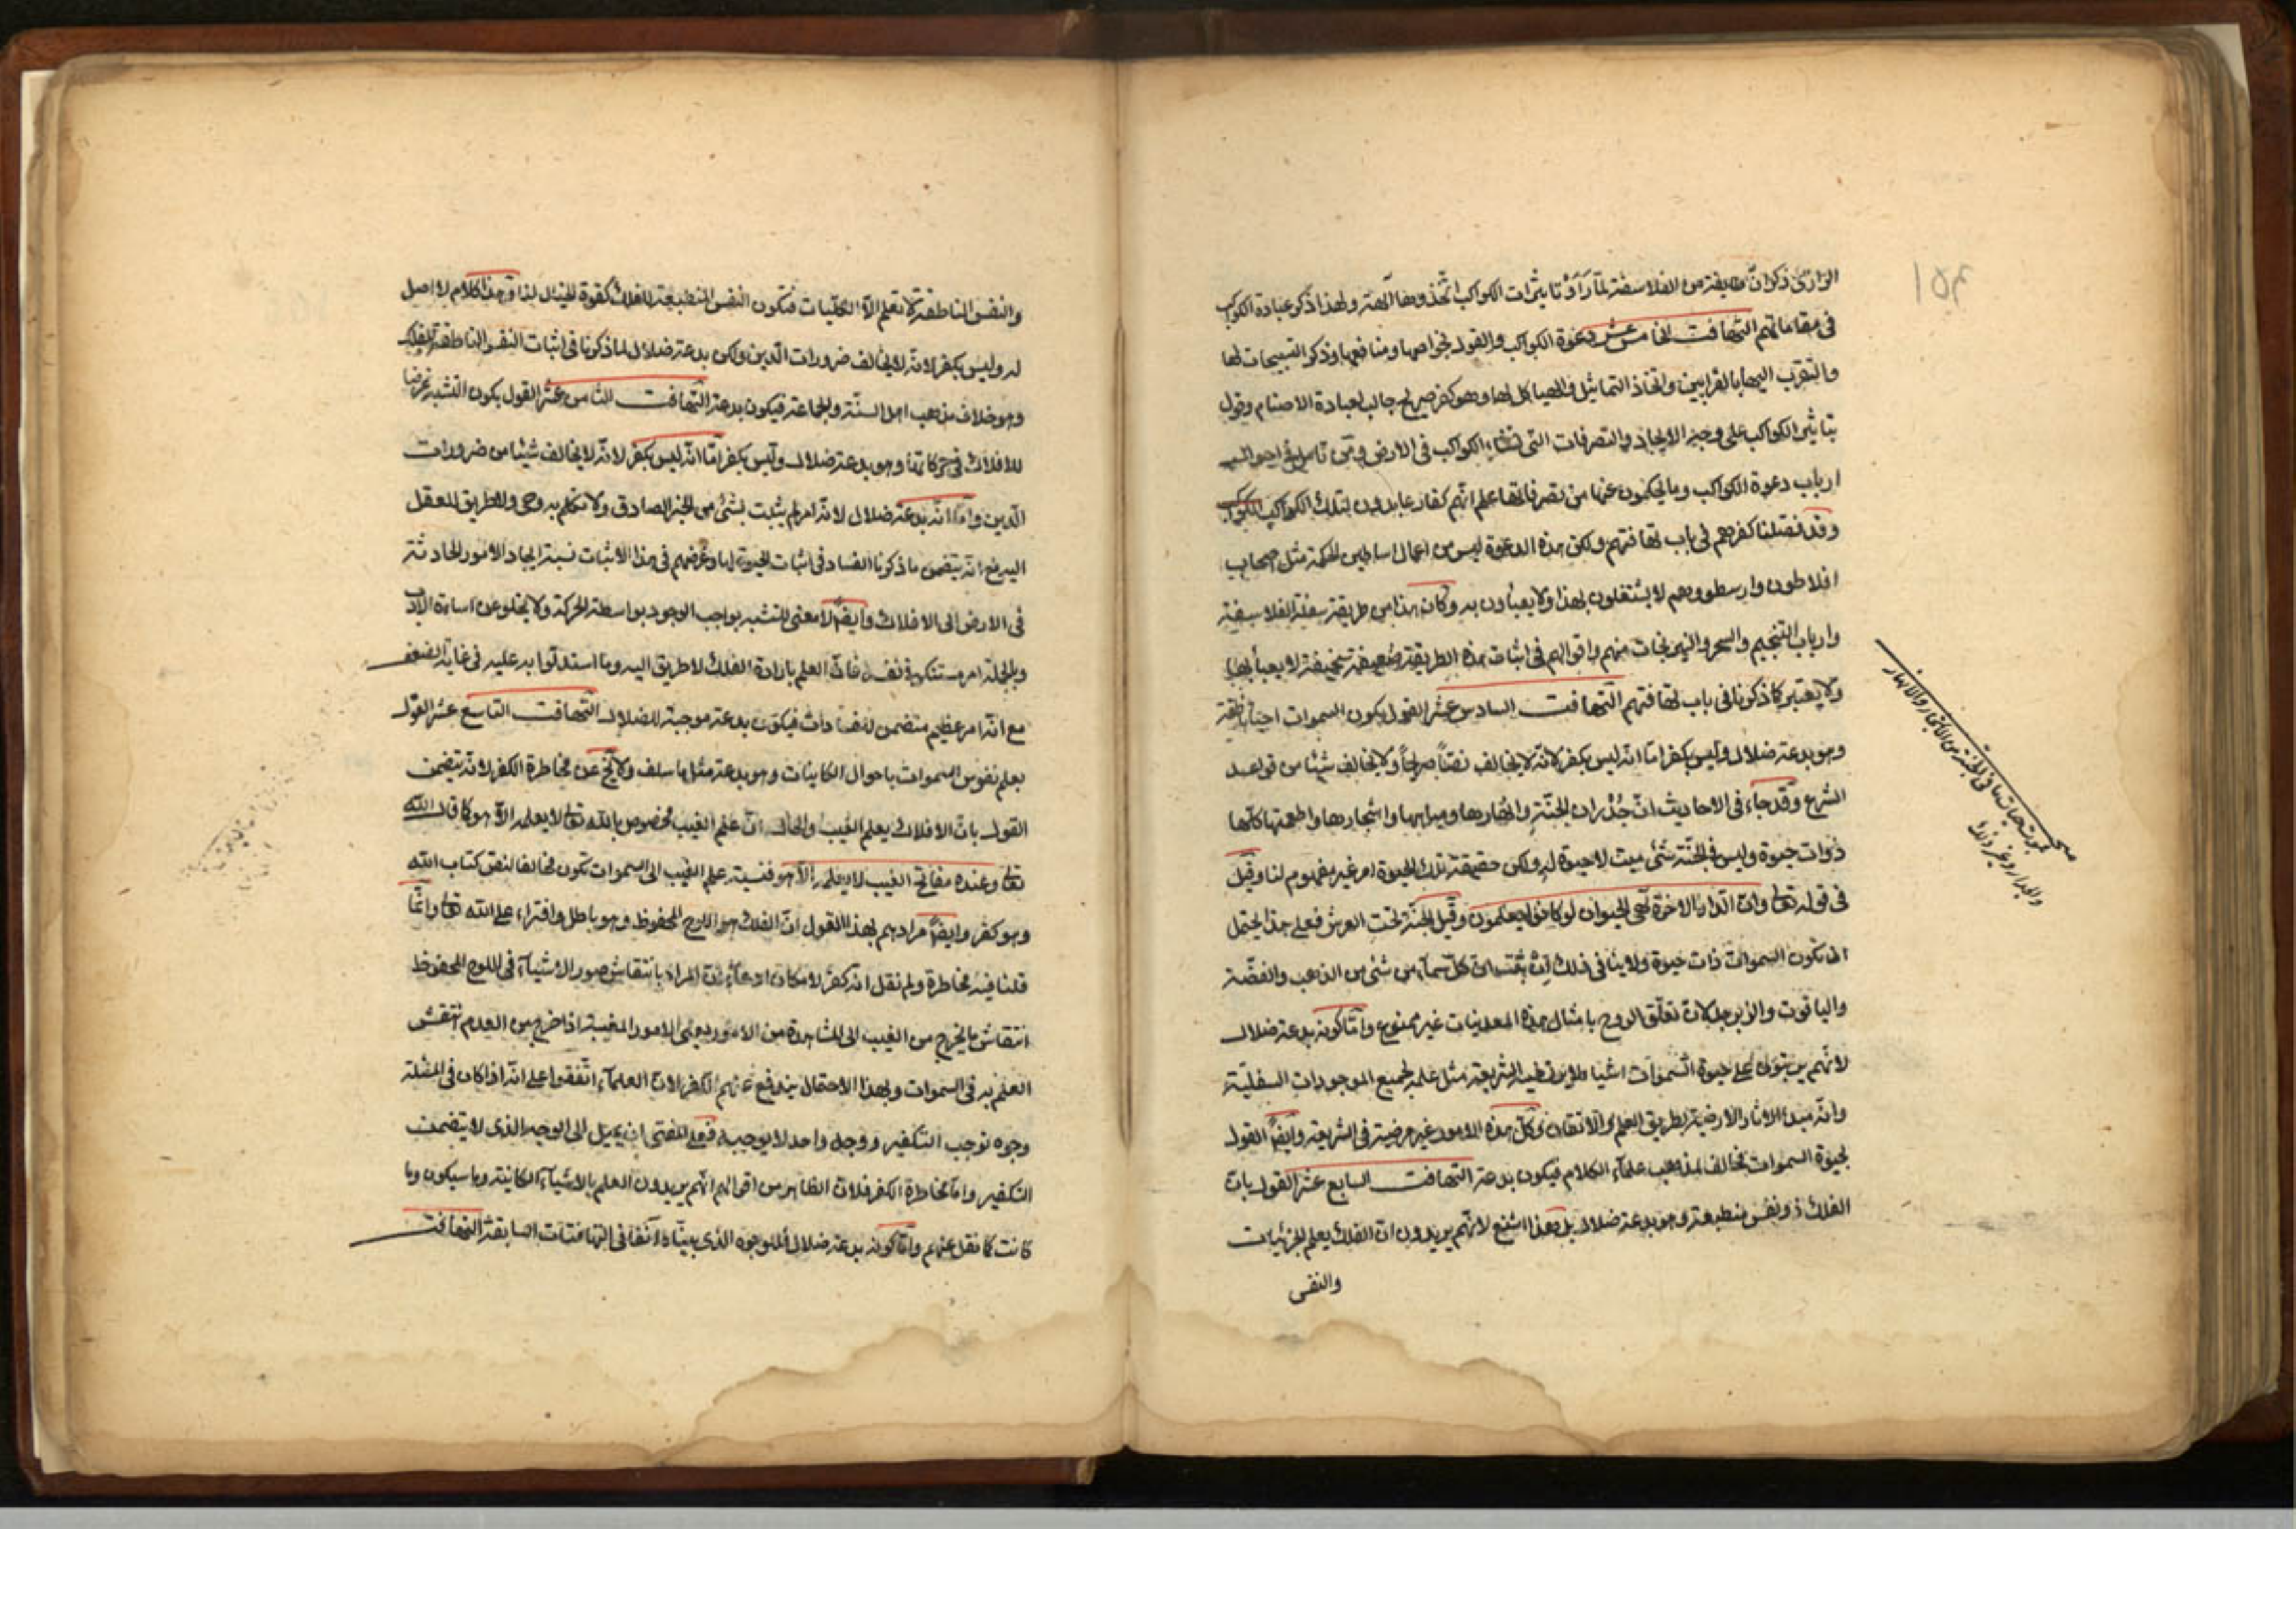 الرازى ذكر ان طايفة من الفلاسفة لمّا رَأَوْا تاثيرات الكواكب اتّخذوها آلهة ولهذا ذكر عبادة الكواكب
فى مقاماتهم التهافت الخامس عشر دعوة الكواكب والقول بخواصها ومنافعها وذكر التسبيحات لها
والتقرب اليها بالقرابين واتخاذ التماثيل والهياكل لها وهو كفر صريح جالب لعبادة الاصنام وقول
بتاثير الكواكب على وجه الايجاد والتصرفات التى الكواكب فى الارض ومن تامل فى احوال
ارباب دعوة الكواكب وما يحكمون عنها من تصرفاتها علم انهم كفار عابدون لتلك الكواكب
وقد فصّلنا كفرهم فى باب تهافتهم ولكن هذه الدعوة ليس من اعمال اساطين الحكمة مثل اصحاب
افلاطون وارسطو وهم لا يشتغلون بهذا ولا يعبأون به وكان هذا من طريقة سفلة الفلاسفة
وارباب التنجيم والسحر والنيرنجات منهم واقوالهم فى اثبات هذه الطريقة ضعيفة سخيفة لا يعبأ بها
ولا يعتبر كما ذكرنا فى باب تهافتهم التهافت السادس عشر القول بكون السموات احياء ناطقة
وهو بدعة ضلال وليس بكفر امّا انه ليس بكفر لانّه لا يخالف نصّاً صريحاً ولا يخالف شيئا من قواعد
الشرع وقد جاء فى الاحاديث انّ جُدْران الجنّة وانهارها ومياهها واشجارها واطعمتها كلّها
ذوات حيوة وليس فى الجنّة شئ ميت لا حيوة له ولكن حقيقة تلك الحيوة امر غير مفهوم لنا وقيل
فى قوله تعا وانّ الدّار الآخرة لهى الحيوان لو كانوا يعلمون وقيل الجنّة تحت العرش فعلى هذا يحتمل
ان تكون السموات ذات حيوة ولا ينافى ذلك ان كلّ سماء من شئ من الذهب والفضّة
والياقوت والزبرجد لانّ تعلّق الروح بامثال هذه المعدنيات غير ممنوع وامّا كونه بدعة ضلال
لانّهم يرتّبون على حيوة السّموات اشيا الشريعة مثل علمه لجميع الموجودات السفليّة
وانّه مبدء الاثار الارضية بطريق العلم والاتقان وكلّ هذه الامور غير مرضية فى الشريعة وايضاً القول
بحيوة السموات مخالف لمذهب علماء الكلام فيكون بدعة التهافت السابع عشر القول بانّ
الفلك ذو نفس منطبعة وهو بدعة ضلال بل هذا اشنع لانّهم يريدون انّ الفلك يعلم الجزئيات
والنفس
صحـ
من الاشجار والانهار
والجدار وغير ذلك
والنفس الناطقة لا تعلم الّا الكلّيات فتكون النفس المنطبعة للفلك كقوة الخيال لنا وهذا كلام لا اصل
له وليس بكفر لانّه لا يخالف ضرورات الدين ولكن بدعة ضلال لما ذكرنا فى اثبات النفس الناطقة للفلك
وهو خلاف مذهب اهل السنّة والجماعة فيكون بدعة التهافت الثامن عشر القول بكون التشبه غرضا
للافلاك فى حركاتها وهو بدعة ضلال وليس بكفر امّا انّه ليس بكفر لانّه لا يخالف شيئا من ضرورات
الدين وامّا انّه بدعة ضلال لانّه امر لم يثبت بشئ من الخبر الصادق ولا تكلم به وحى ولا طريق للعقل
اليه مع انّه يتضمن ما ذكرنا الفساد فى اثبات الحيوة لها وغرضهم فى هذا الاثبات نسبة ايجاد الامور الحادثة
فى الارض الى الافلاك وايضاً لا معنى للتشبه بواجب الوجود بواسطة الحركة ولا يخلو عن اساءة الادب
وبالجملة امر مستنكر فى نفسه فانّ العلم بارادة الفلك لا طريق اليه وما استدلّوا به عليه فى غاية الضعف
مع انّه امر عظيم متضمن لفسادات فيكون بدعة موجبة للضلال التهافت التاسع عشر القول
بعلم نفوس السموات باحوال الكاينات وهو بدعة مثل ما سلف ولا يخ عن مخاطرة الكفر لانّه يتضمن
القول بانّ الافلاك يعلم الغيب والحال انّ علم الغيب مخصوص بالله تعا لا يعلمه الّا هو كما قال الله
تعا وعنده مفاتح الغيب لا يعلمها الّا هو فنسبة علم الغيب الى السموات تكون مخالفا لنص كتاب الله
وهو كفر وايضاً مرادهم بهذا القول انّ الفلك هو اللوح المحفوظ وهو باطل وافتراء على الله تعا وانّما
قلنا فيه مخاطرة ولم نقل انّه كفر لامكان ادعاء انّ المراد بانتقاش صور الاشياء فى اللوح المحفوظ
انتقاش ما يخرج من الغيب الى المشاهدة من الامور يعنى الامور المغيبة اذا خرج من العدم انتقش
العلم به فى السموات وبهذا الاحتمال يندفع عنهم الكفر لانّ العلماء اتّفقوا على انّه اذا كان فى المسئلة
وجوه توجب التكفير ووجه واحد لا يوجبه فعلى المفتى ان يميل الى الوجه الذى لا يتضمن
التكفير وامّا مخاطرة الكفر فلانّ الظاهر من اقوالهم انّهم يريدون العلم بالاشياء الكائنة وما سيكون وما
كانت كما نقل عنهم وامّا كونه بدعة ضلال فللوجوه الذى بيّناه آنفا فى التهافتات السابقة التهافت